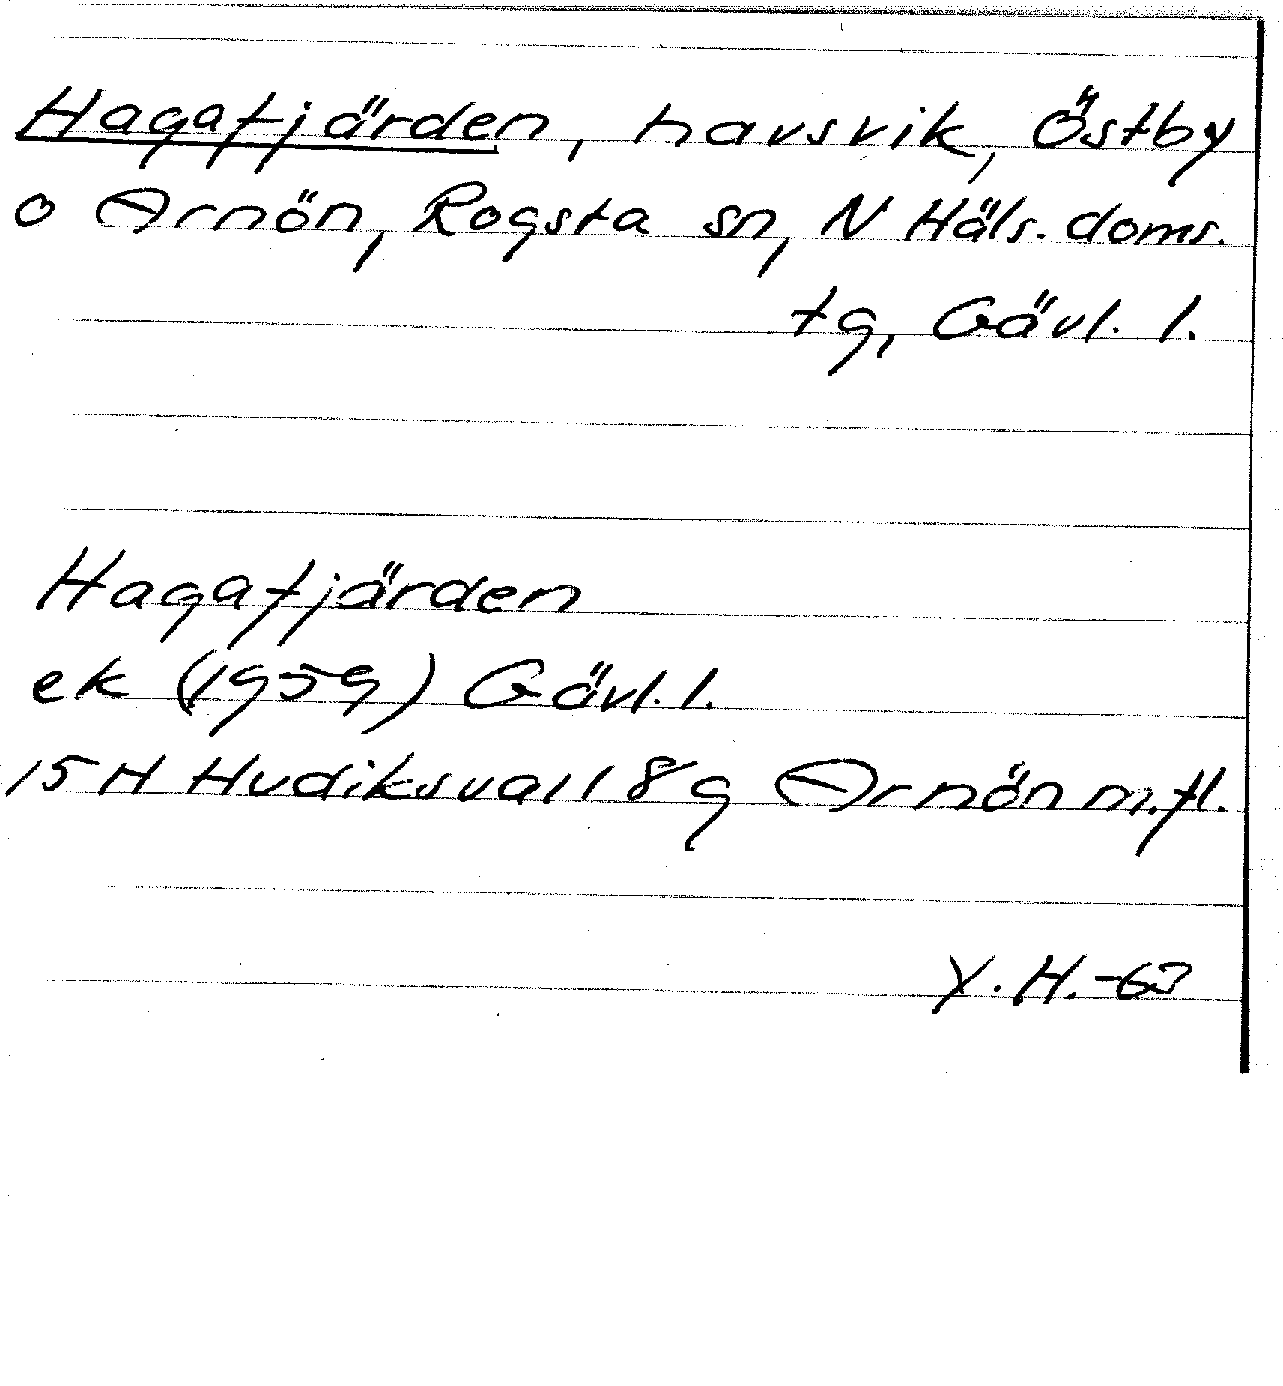 Hagafjärden, havsvik, Östby
o Arnön, Rogsta sn, N Häls. doms.
tg, Gävl. l.
Hagafjärden
ek (1959) Gävl. l.
15 H Hudiksvall 8 g Arnön m.fl.
Y. H. -63